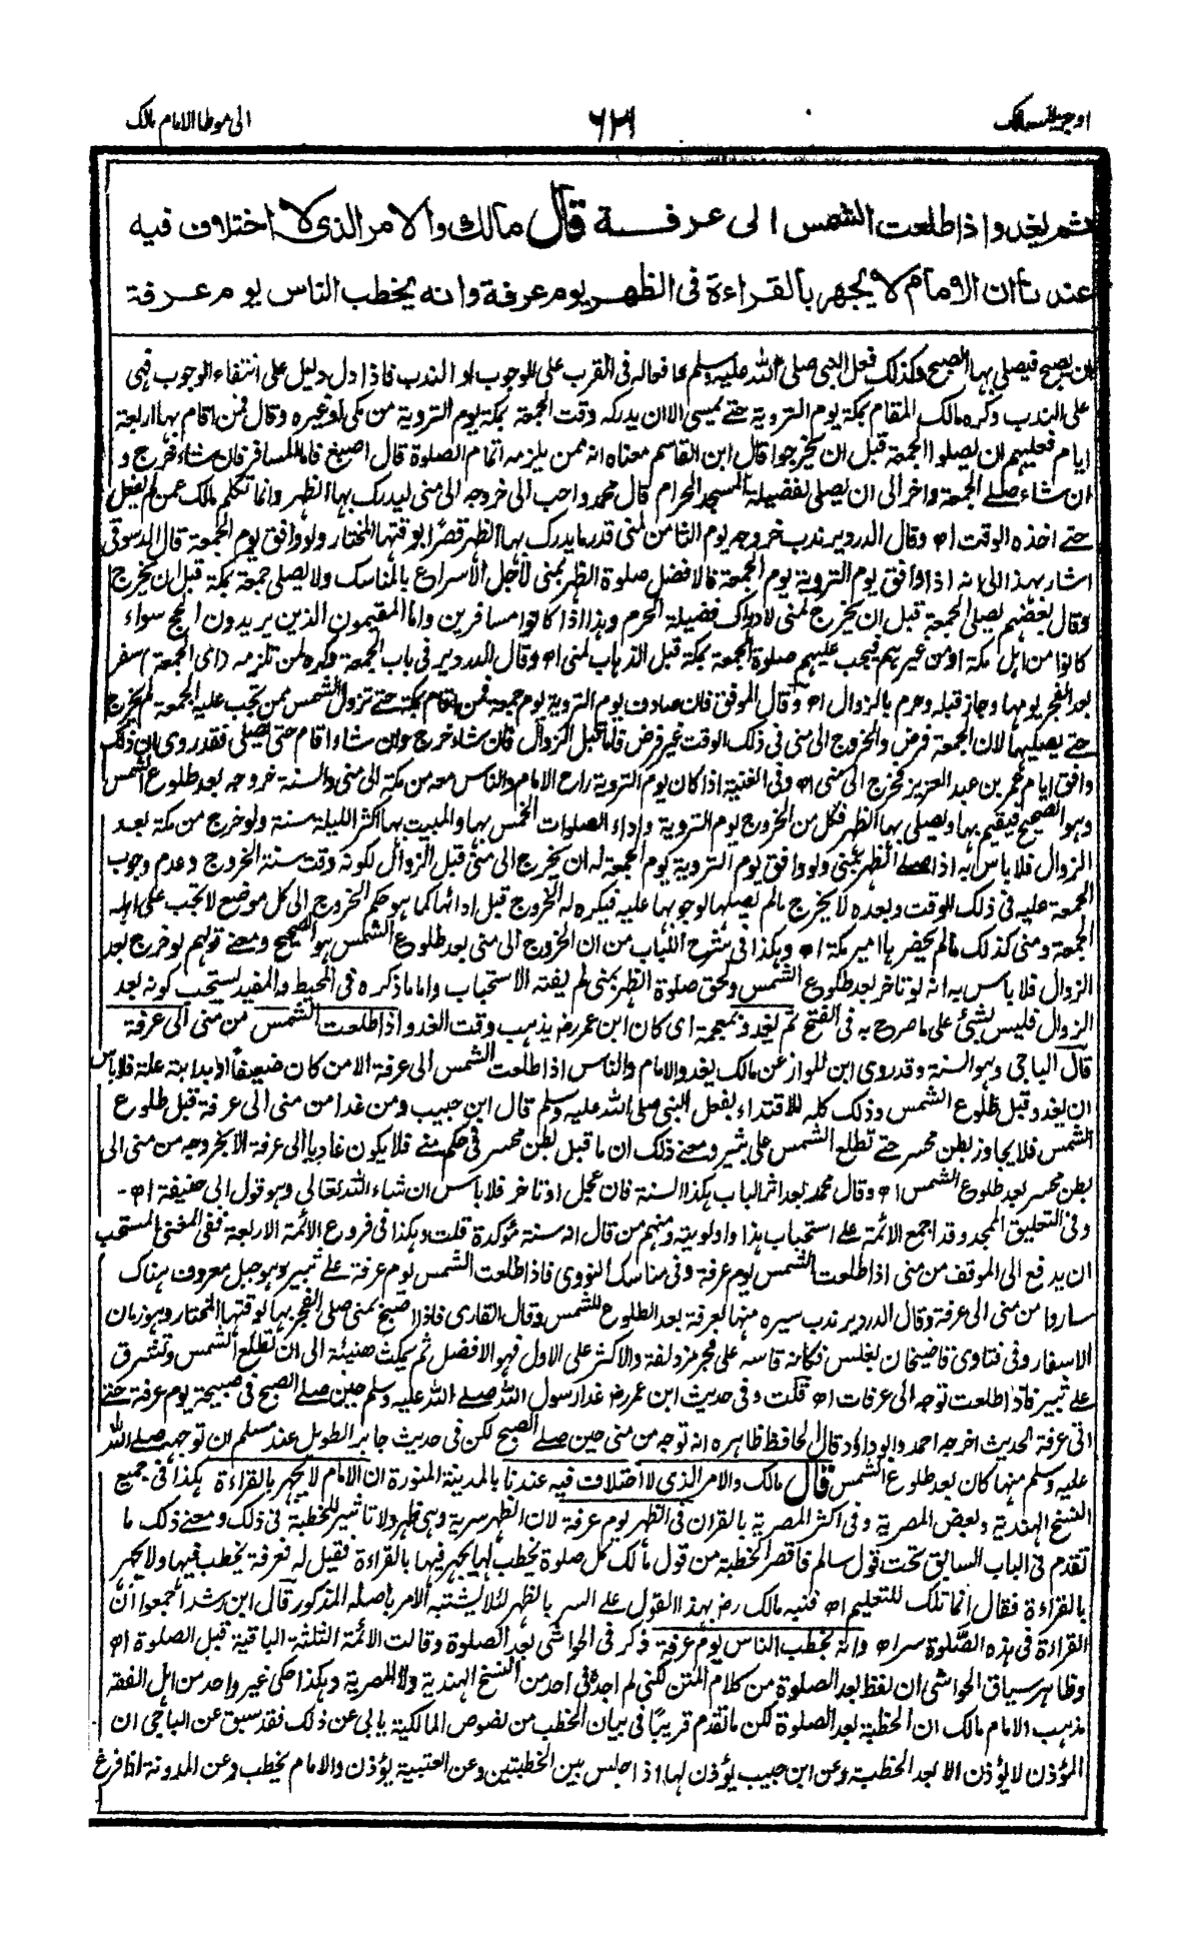 اوجز المسالك ٦٢١ الى موطا الامام مالك
ثم يغدو اذا طلعت الشمس الى عرفة قال مالك والامر الذى لا اختلاف فيه
عندنا ان الامام لا يجهر بالقراءة فى الظهر يوم عرفة وانه يخطب الناس يوم عرفة
ان يصبح فيصلى بها الصبح وكذلك فعل النبى صلى الله عليه وسلم فافعاله فى القرب على الوجوب او الندب فاذا دل دليل على انتفاء الوجوب فهى
على الندب وكره مالك المقام بمكة يوم التروية حتى يمسى الا ان يدركه وقت الجمعة بمكة يوم التروية من مكى او غيره وقال فمن اقام بها اربعة
ايام فعليهم ان يصلوا الجمعة قبل ان يخرجوا قال ابن القاسم معناه انه ممن يلزمه اتمام الصلوة قال اصبغ فاما المسافر فان شاء خرج و
ان شاء صلى الجمعة واخر الى ان يصلى لفضيلة المسجد الحرام قال محمد واحب الى خروجه الى منى ليدرك بها الظهر وانما تكلم مالك عمن لم يفعل
حتى اخذه الوقت اھ وقال الدردير ندب خروجه يوم الثامن لمنى قدر ما يدرك بها الظهر قصرا بوقتها المختار ولو وافق يوم الجمعة قال الدسوقى
اشار بهذا الى انه اذا وافق يوم التروية يوم الجمعة فالافضل صلوة الظهر بمنى لاجل الاسراع بالمناسك ولا يصلى جمعة بمكة قبل ان يخرج
وقال بعضهم يصلى الجمعة قبل ان يخرج لمنى لادراك فضيلة الحرم وهذا اذا كانوا مسافرين واما المقيمون الذين يريدون الحج سواء
كانوا من اهل مكة او من غيرهم فيجب عليهم صلوة الجمعة بمكة قبل الذهاب لمنى اھ وقال الدردير فى باب الجمعة وكره لمن تلزمه داى الجمعة سفر
بعد الفجر يومها وجاز قبله وحرم بالزوال اھ وقال الموفق فان صادف يوم التروية يوم جمعة فمن اقام بمكة حتى تزول الشمس ممن تجب عليه الجمعة لم يخرج
حتى يصليها لان الجمعة فرض والخروج الى منى فى ذلك الوقت غير فرض فاما قبل الزوال فان شاء خرج وان شاء اقام حتى يصلى فقد روى ان ذلك
وافق ايام عمر بن عبد العزيز فخرج الى منى اھ وفى الغنية اذا كان يوم التروية راح الامام والناس معه من مكة الى منى والسنة خروجه بعد طلوع الشمس
وهو الصحيح فيقيم بها ويصلى بها الظهر فكل من الخروج يوم التروية واداء الصلوات الخمس بها والمبيت بها اكثر الليلة سنة ولو خرج من مكة بعد
الزوال فلا باس به اذا صلى الظهر بمنى ولو وافق يوم التروية يوم الجمعة له ان يخرج الى منى قبل الزوال لكونه وقت سنة الخروج وعدم وجوب
الجمعة عليه فى ذلك الوقت وبعده لا يخرج مالم يصلها لوجوبها عليه فيكره له الخروج قبل ادائها كما هو حكم الخروج الى كل موضع لا تجب على اهله
الجمعة ومنى كذلك مالم يحضرها امير مكة اھ وهكذا فى شرح اللباب من ان الخروج الى منى بعد طلوع الشمس هو الصحيح ومعنى قولهم لو خرج بعد
الزوال فلا باس به انه لو تاخر بعد طلوع الشمس ولحق صلوة الظهر بمنى لم يفته الا ستحباب واما ما ذكره فى المحيط والمفيد يستحب كونه بعد
الزوال فليس بشئ على ما صرح به فى الفتح ثم يغدو بمعجمة اى كان ابن عمر رض يذهب وقت الغدو اذا طلعت الشمس من منى الى عرفة
قال الباجى وهو السنة وقد روى ابن المواز عن مالك يغدو الامام والناس اذا طلعت الشمس الى عرفة الا من كان ضعيفا او بدابته علة فلا باس
ان يغدو قبل طلوع الشمس وذلك كله للاقتداء بفعل النبى صلى الله عليه وسلم قال ابن حبيب ومن غدا من منى الى عرفة قبل طلوع
الشمس فلا يجاوز بطن محسر حتى تطلع الشمس على ثبير ومعنى ذلك ان ما قبل بطن محسر فى حكم منى فلا يكون غاديا الى عرفة الا بخروجه من منى الى
بطن محسر بعد طلوع الشمس اھ وقال محمد بعد اثر الباب هكذا السنة فان عجل او تاخر فلا باس ان شاء الله تعالى وهو قول ابى حنيفة اھ -
وفى التعليق الممجد وقد اجمع الائمة على استحباب هذا واولويته ومنهم من قال انه سنة مؤكدة قلت وهكذا فى فروع الائمة الاربعة ففى المغنى المستحب
ان يدفع الى الموقف من منى اذا طلعت الشمس يوم عرفة وفى مناسك النووى فاذا طلعت الشمس يوم عرفة على ثبير وهو جبل معروف هناك
ساروا من منى الى عرفة وقال الدردير ندب سيره منها لعرفة بعد الطلوع للشمس وقال القارى فاذا اصبح بمنى صلى الفجر بها لوقتها المختار وهو زمان
الاسفار وفى فتاوى قاضيخان بغلس فكانه قاسه على فجر مزدلفة والاكثر على الاول فهو الافضل ثم يمكث هنيئة الى ان تطلع الشمس وتشرق
على ثبير فاذا طلعت توجه الى عرفات اھ قلت وفى حديث ابن عمر رض غدا رسول الله صلى الله عليه وسلم حين صلى الصبح فى صبيحة يوم عرفة حتى
اتى عرفة الحديث اخرجه احمد وابو داؤد قال الحافظ ظاهره انه توجه من منى حين صلى الصبح لكن فى حديث جابر الطويل عند مسلم ان توجهه صلى الله
عليه وسلم منها كان بعد طلوع الشمس قال مالك والامر الذى لا اختلاف فيه عندنا بالمدينة المنورة ان الامام لا يجهر بالقراءة هكذا فى جميع
النسخ الهندية وبعض المصرية وفى اكثر المصرية بالقران فى الظهر يوم عرفة لان الظهر سرية وهى ظهر ولا تاثير للخطبة فى ذلك ومعنى ذلك ما
تقدم فى الباب السابق تحت قول سالم فاقصر الخطبة من قول مالك كل صلوة يخطب لها يجهر فيها بالقراءة فقيل له فعرفة يخطب فيها ولا يجهر
بالقراءة فقال انما تلك للتعليم اھ فنبه مالك رض بهذا القول على السر بالظهر لئلا يشتبه الامر باصله المذكور قال ابن رشد اجمعوا ان
القراءة فى هذه الصلوة سرا اھ وانه يخطب الناس يوم عرفة ذكر فى الحواشى بعد الصلوة وقالت الائمة الثلثة الباقية قبل الصلوة اھ
وظاهر سياق الحواشى ان لفظ بعد الصلوة من كلام المتن لكنى لم اجده فى احد من النسخ الهندية ولا المصرية وهكذا حكى غير واحد من اهل الفقه
مذهب الامام مالك ان الخطبة بعد الصلوة لكن ما تقدم قريبا فى بيان الخطب من نصوص المالكية يابى عن ذلك فقد سبق عن الباجى ان
المؤذن لا يؤذن الا بعد الخطبة وعن ابن حبيب يؤذن لها اذا جلس بين الخطبتين وعن العتبية يؤذن والامام يخطب وعن المدونة اذا فرغ